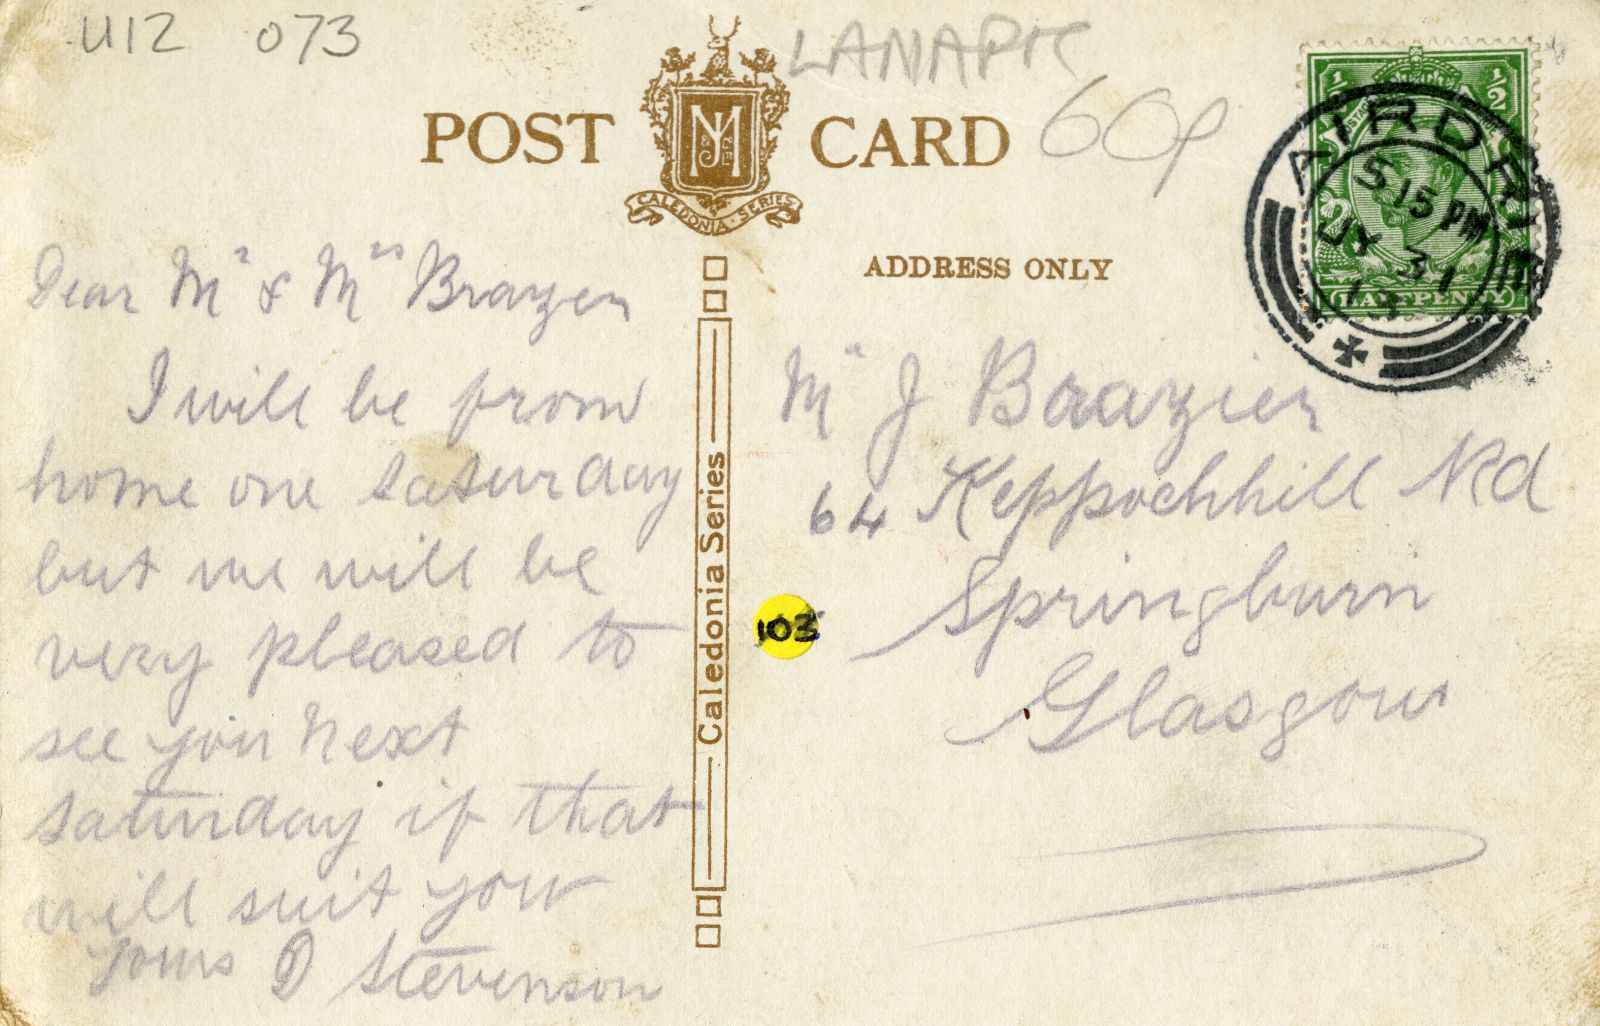 U12 073
LANARK
60p
POST CARD
M
CALEDONIA SERIES
ADDRESS ONLY
1/2 1/2
HALFPENNY
AIRDRIE
5 15 PM
JY 31
13
Dear Mr & Mrs Brazer
I will be from
home one Saturday
but we will be
very pleased to
see you next
Saturday if that
will suit you
Yours D Stevenson
Caledonia Series
103
Mr J Brazier
64 Keppochhill Rd
Springburn
Glasgow